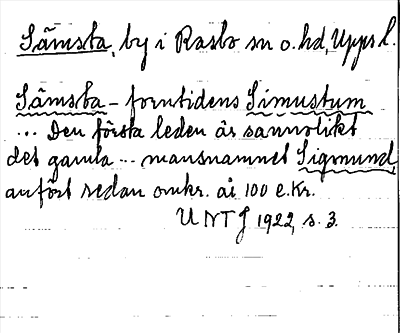 Sämsta, by i Rasbo sn o. hd, Upps l.
Sämsta – forntidens Simustum
... Den första leden är sannolikt
det gamla ... mansnamnet Sigmund,
anfört redan omkr. år 100 e. Kr.
UNT J 1922, s. 3.